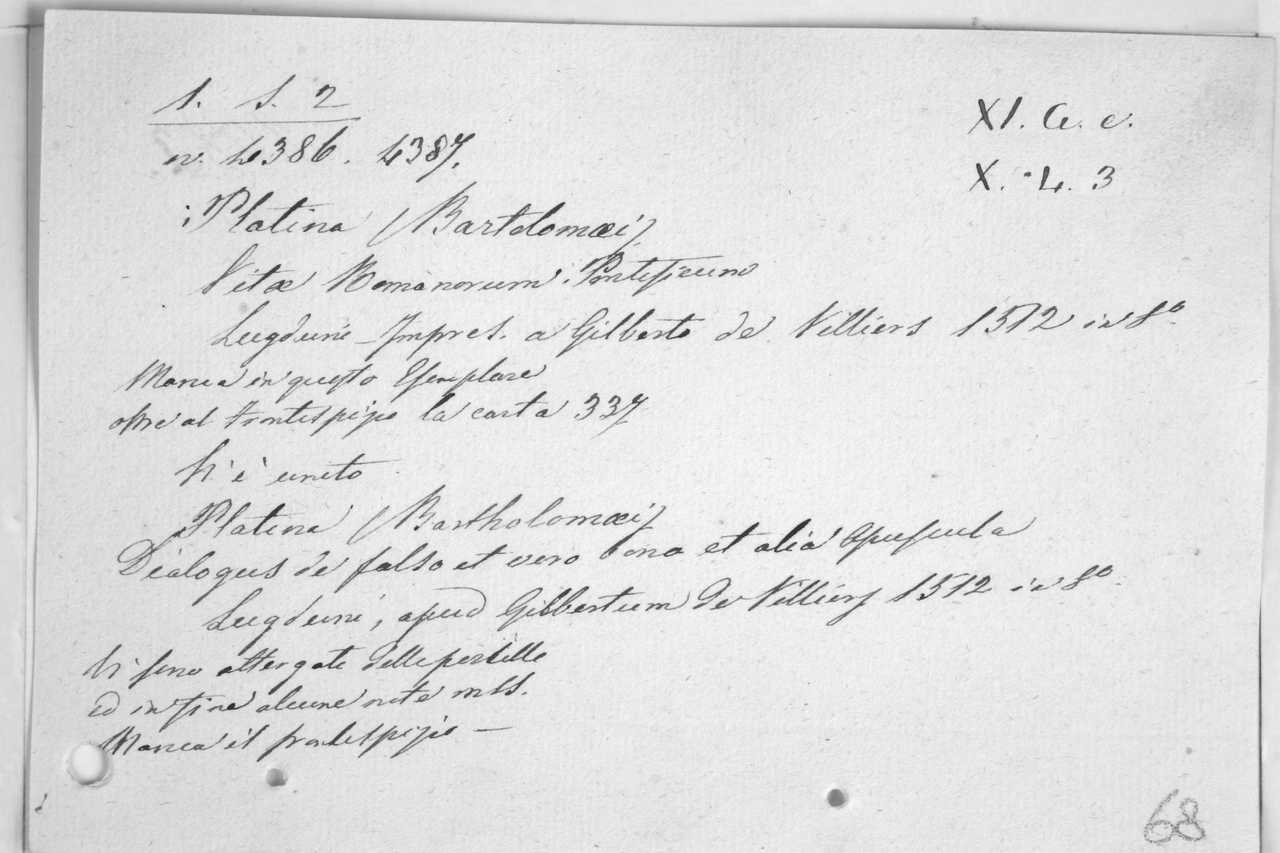 1. S. 2
XI. G. e.
n. 4386. 4387.
X. 4. 3
Platina (Bartolomæi)
Vitæ Romanorum Pontificum
Lugduni Impres. a Gilberto de Villiers 1512 in 8º
Manca in questo Esemplare
oltre al frontespizio la carta 337
Vi è unito
Platina (Bartholomæi)
Dialogus de falso et vero bono et alia Opuscula
Lugduni, apud Gilbertum de Villiers 1512 in 8º
Vi sono attergate delle postille
ed in fine alcune note mss.
Manca il frontespizio —
68